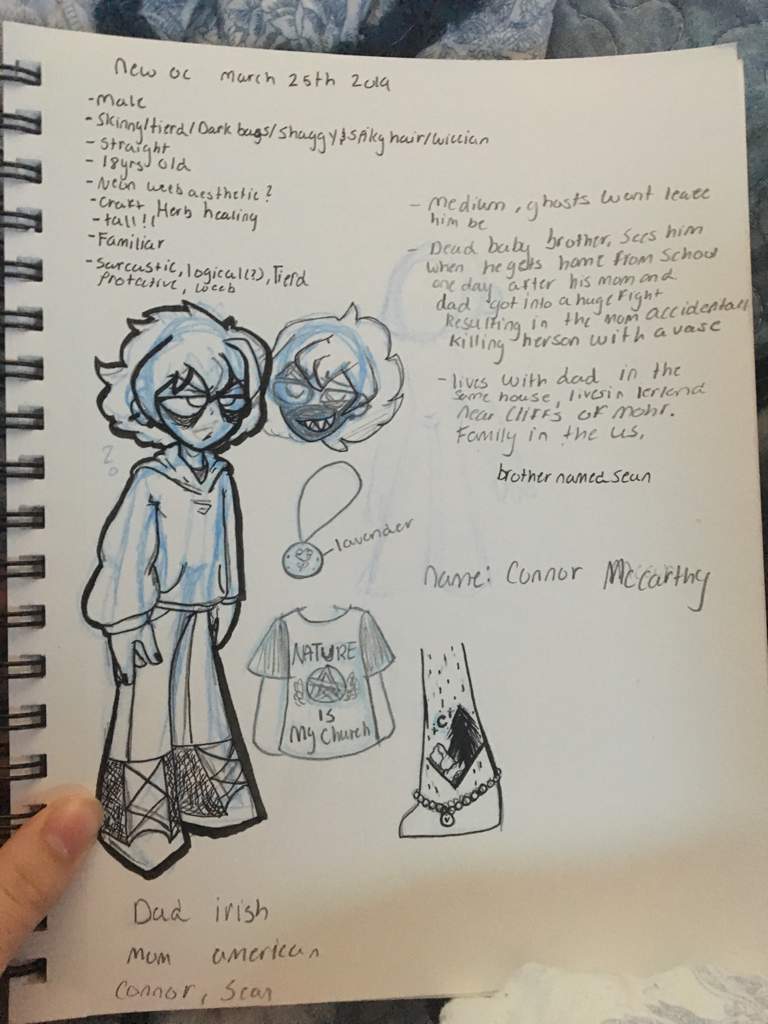 New oc March 25th 2019
- Male
- Skinny/tierd/Dark bags/Shaggy & spiky hair/wiccian
- Straight
- 18yrs old
- Neon weeb aesthetic?
- Craft Herb healing
- tall!!
- Familiar
- Sarcastic, logical(?), Tierd
Protective, weeb
- Medium, ghosts wont leave
him be
- Dead baby brother, Sees him
when he gets home from School
one day after his mom and
dad got into a huge fight
Resulting in the mom accidentall
killing her son with a vase
- lives with dad in the
same house, lives in Ierland
near Cliffs of Mohr.
Family in the US.
brother named sean
?
lavender
Name: Connor McCarthy
NATURE
IS
My Church
C
Dad irish
Mom american
Connor, Sean